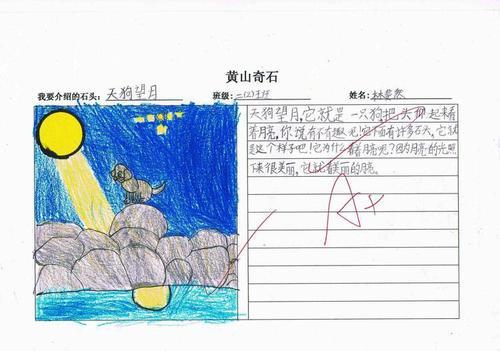 黄山奇石
我要介绍的石头：天狗望月 班级：二(2) 姓名：林
天狗望月，它就是一只狗把头仰起来看
着月亮，你说有不有趣呢！它下面有许多石头，它就
是这个样子吧！它为什么看着月亮呢？因为月亮的光照
下来很美丽，它就看美丽的月亮。
A+